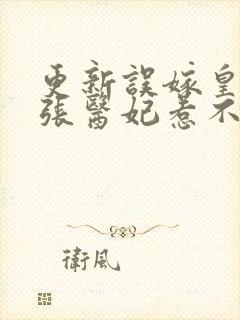 更新誤嫁皇
張醫妃惹不
衛風